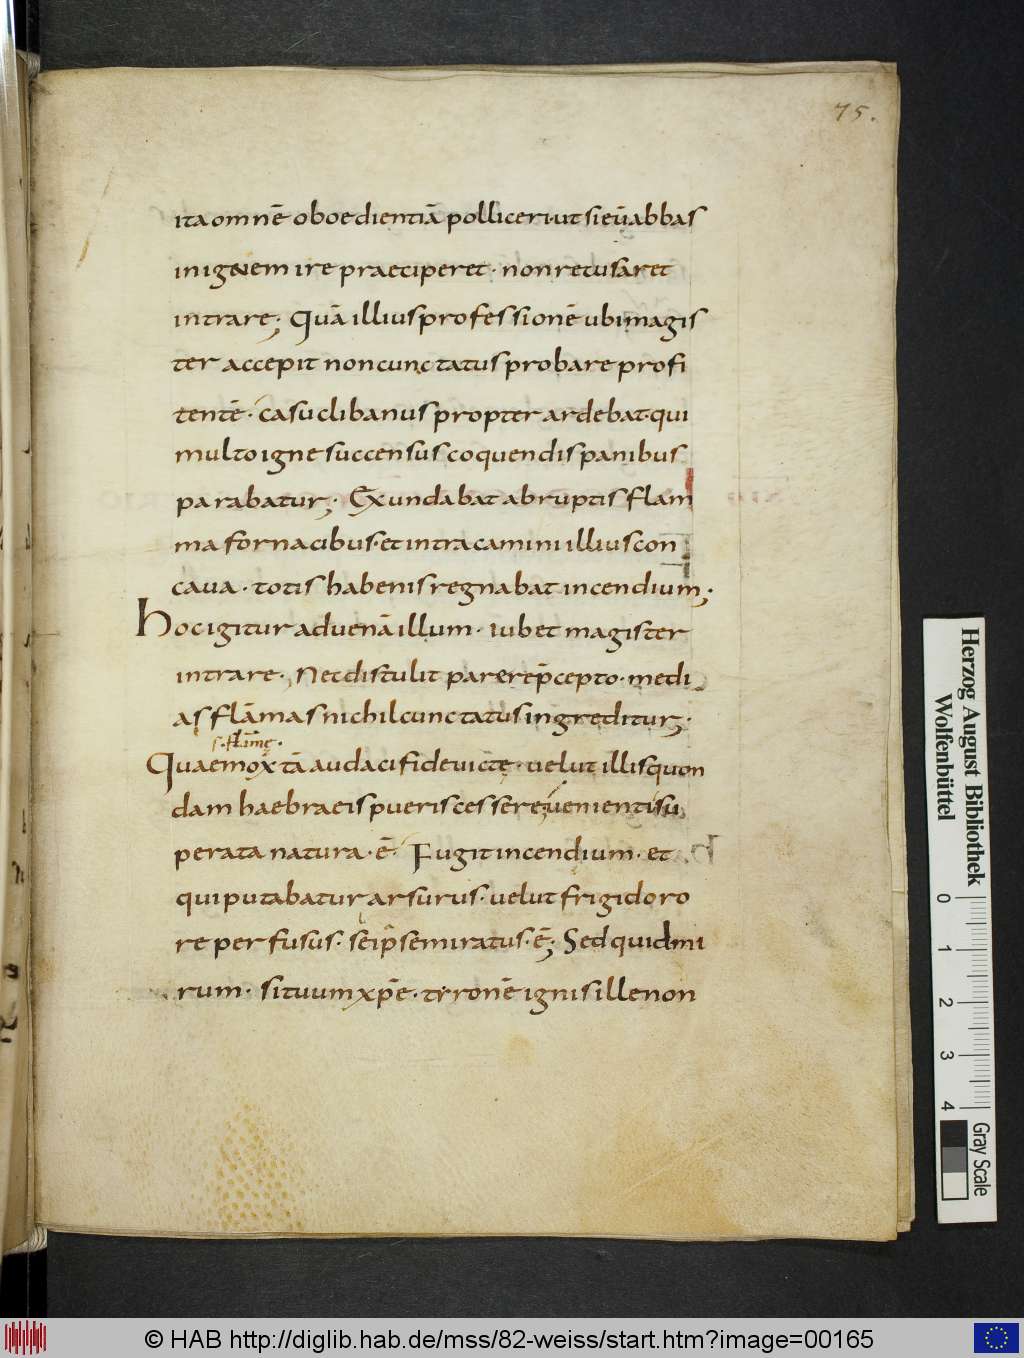 75.
ita omnē oboedientiā polliceri· ut si eū abbas
in ignem ire praeciperet · non recusaret
intrare; Quā illius professionē ubi magis
ter accepit non cunctatus probare profi
tentē · casu clibanus propter ardebat· qui
multo igne succensus coquendis panibus
parabatur; Exundabat abruptis flam
ma fornacibus· et intra camini illius con
cava · totis habenis regnabat incendium;
Hoc igitur aduenā illum · iubet magister
intrare · Nec distulit parere p̄cepto · medi
as flāmas nichil cunctatus ingreditur;
s· flāmę·
Quae mox tā audaci fide victę · velut illis quon
dam haebraeis pueris cessere venienti su
perata natura · ē · Fugit incendium · et
qui putabatur arsurus · velut frigido ro
re perfusus · seip̄se miratus · ē; Sed quid mi
rum · si tuum xp̄e · tironē ignis ille non
Herzog August Bibliothek
Wolfenbüttel
0 1 2 3 4
Gray Scale
© HAB http://diglib.hab.de/mss/82-weiss/start.htm?image=00165